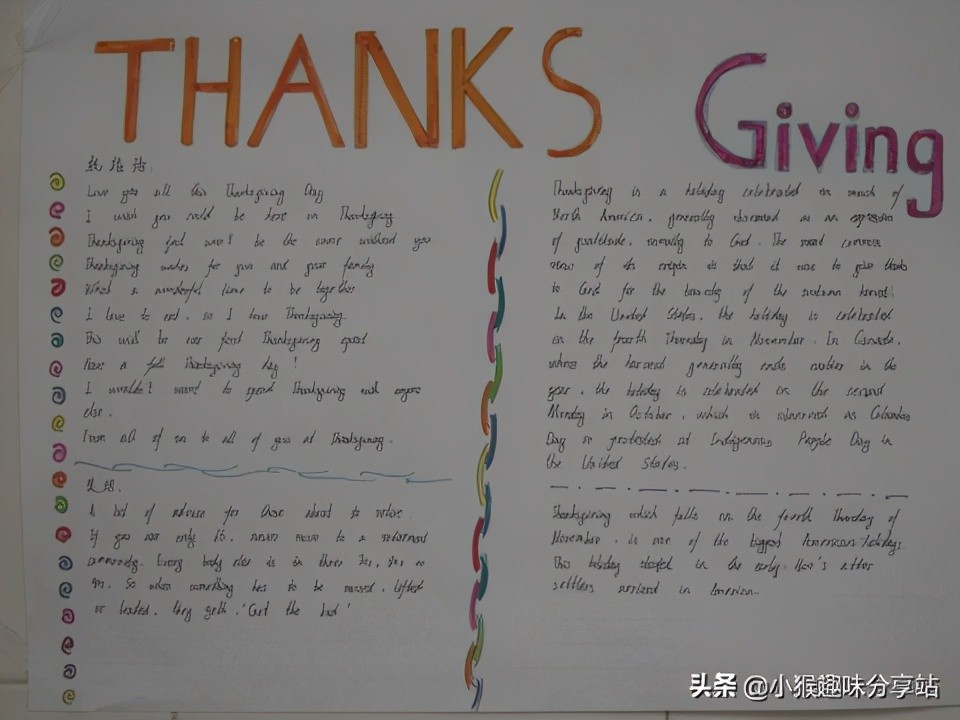 THANKS Giving
Love you all this Thanksgiving Day
I wish you could be here on Thanksgiving
Thanksgiving just won't be the same without you
Thanksgiving wishes for you and your family
What a wonderful time to be together
I love to eat, so I love Thanksgiving
This will be our first Thanksgiving
Have a full Thanksgiving day!
I wouldn't want to spend Thanksgiving with anyone
else.
From all of us to all of you at Thanksgiving.
笑话.
A bit of advice for those about to retire
If you are only 65, never move to a retirement
community. Every body else is in their 70s, 80s or
90s. So when something has to be moved, lifted
or loaded, they yell, 'Get the kid'
Thanksgiving is a holiday celebrated in much of
North America, generally observed as an expression
of gratitude, usually to God. The most common
view of its origin is that it was to give thanks
to God for the bounty of the autumn harvest
In the United States, the holiday is celebrated
on the fourth Thursday in November. In Canada,
where the harvest generally ends earlier in the
year, the holiday is celebrated on the second
Monday in October, which is observed as Columbus
Day or protested as Indigenous People Day in
the United States.
Thanksgiving which falls on the fourth Thursday of
November, is one of the biggest American holidays
This holiday started in the early after
settlers arrived in American.
头条 @小猴趣味分享站